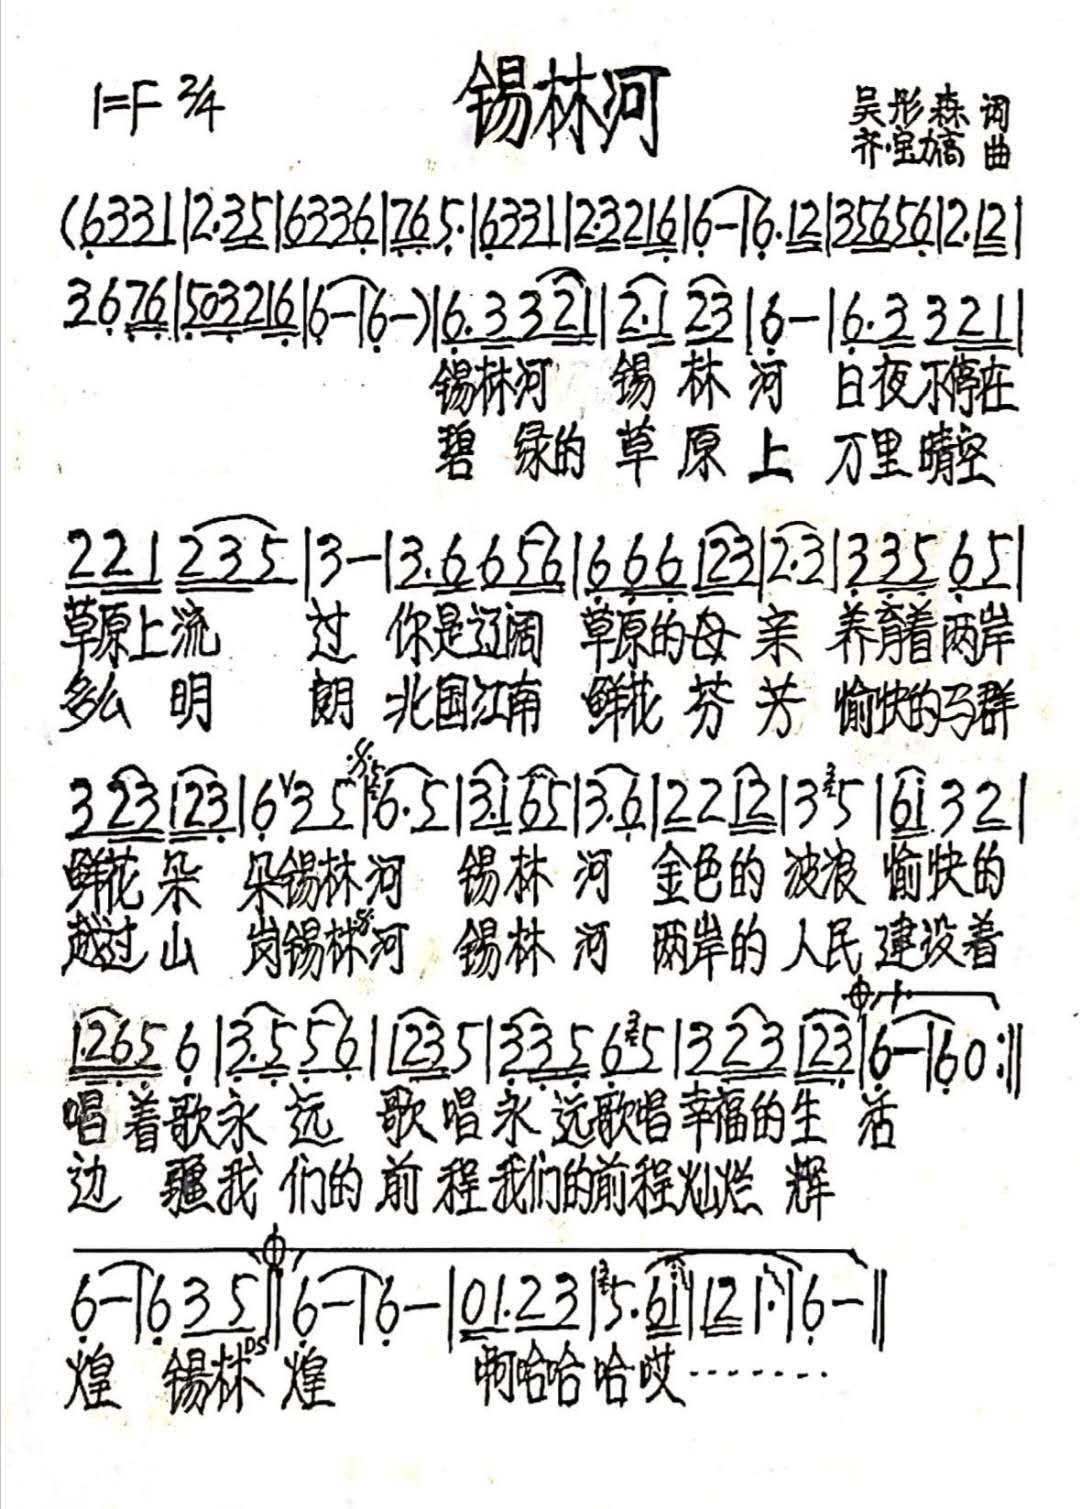 1=F 2/4
锡林河
吴彤森 词
齐·宝力高 曲
(6331|2·35|6336|765·|6331|2·3216|6-|6·12|35656|2·12|
3676|503216|6-|6-)|6·3321|2·1 23|6-|6·3 321|
锡林河 锡林河 日夜不停在
碧绿的草原上 万里晴空
221 235|3-|3·6656|666 123|2·3|335 65|
草原上流 过 你是辽阔 草原的母亲 养育着两岸
多么 明 朗 北国江南 鲜花芬芳 愉快的马群
323 123|6∨35|6·5|3·1 65|3·6|22 12|3 5|61 32|
鲜花朵 朵锡林河 锡林河 金色的 波浪 愉快的
越过山 岗锡林河 锡林河 两岸的 人民 建设着
1·265 6|3·5 56|1235|335 65|323 123|6-|60:||
唱着歌永远 歌唱永远歌唱幸福的生 活
边疆我们的前程我们的前程灿烂 辉
6-|6 35||6-|6-|01·23|5·61|12 1·|6-||
煌 锡林DS 煌 啊哈哈哈哎········